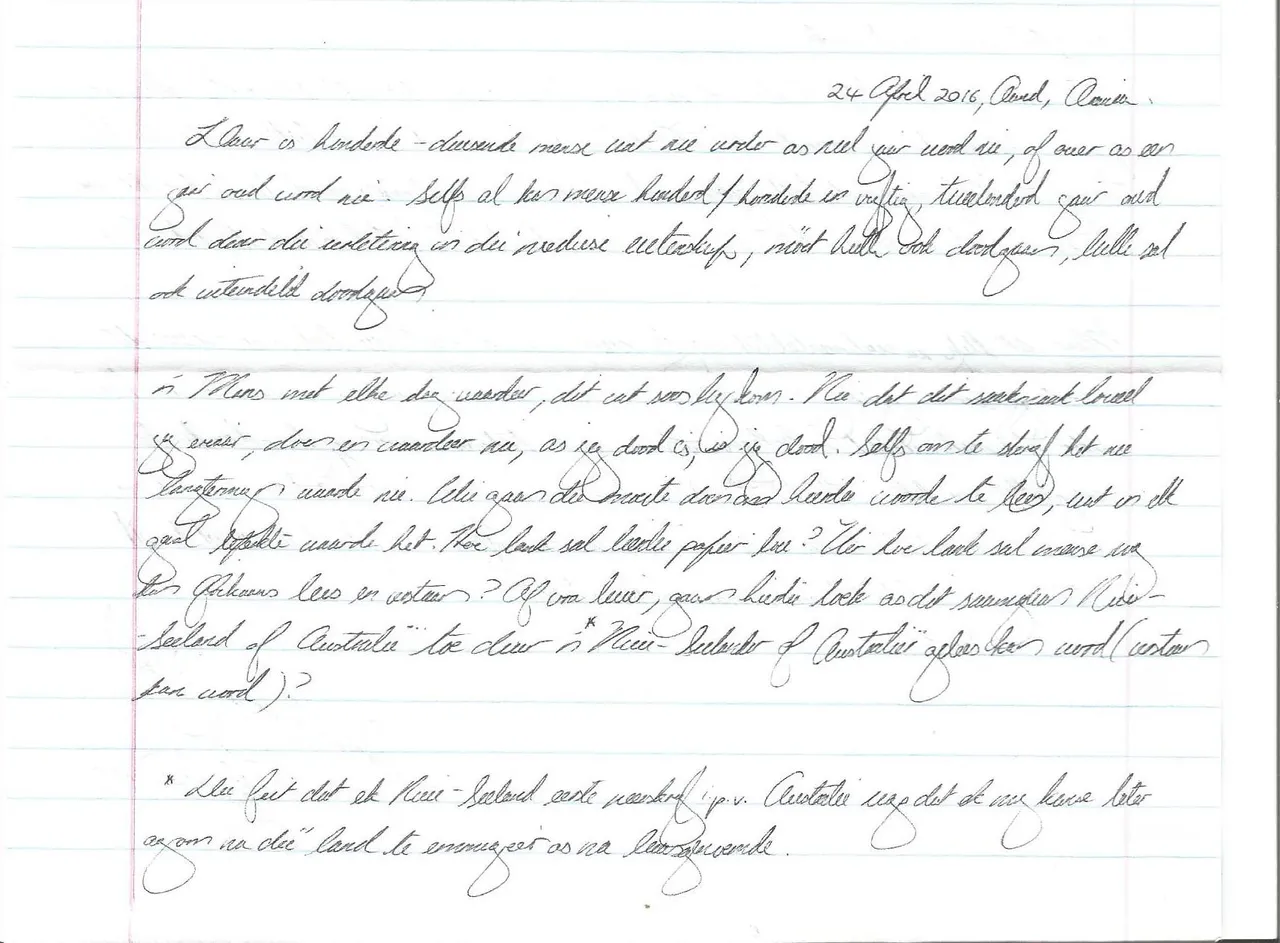 24 April 2016, Aand,
Daar is honderde-duisende mense wat nie ouer as jaar word nie, of ouer as een
jaar oud word nie. Selfs al kan mense honderd / honderde en vyftig, tweehonderd jaar oud
word deur die verbetering in die mediese wetenskap, móét hulle ook doodgaan, hulle sal
ook uiteindelik doodgaan
'n Mens moet elke dag waardeer, dit wat soos hy kom. Nie dat dit saak maak hoeveel
jy ervaar, doen en waardeer nie, as jy dood is, is jy dood. Selfs om te skryf het nie
langtermyn waarde nie. Wie gaan die moeite doen om hierdie woorde te lees, wat in elk
geval beperkte waarde het. Hoe lank sal hierdie papier hou? Vir hoe lank sal mense nog
kan Afrikaans lees en verstaan? Of vra liewer, gaan hierdie boek as dit saamgaan Nieu-
-Seeland of Australië toe deur 'n * Nieu-Seelander of Australiër gelees kan word (verstaan
kan word)?
* Die feit dat ek Nieu-Seeland eerste neerskryf i.p.v. Australië sê dat ek nog kanse later
na dié land te emmigreer as na laasgenoemde.